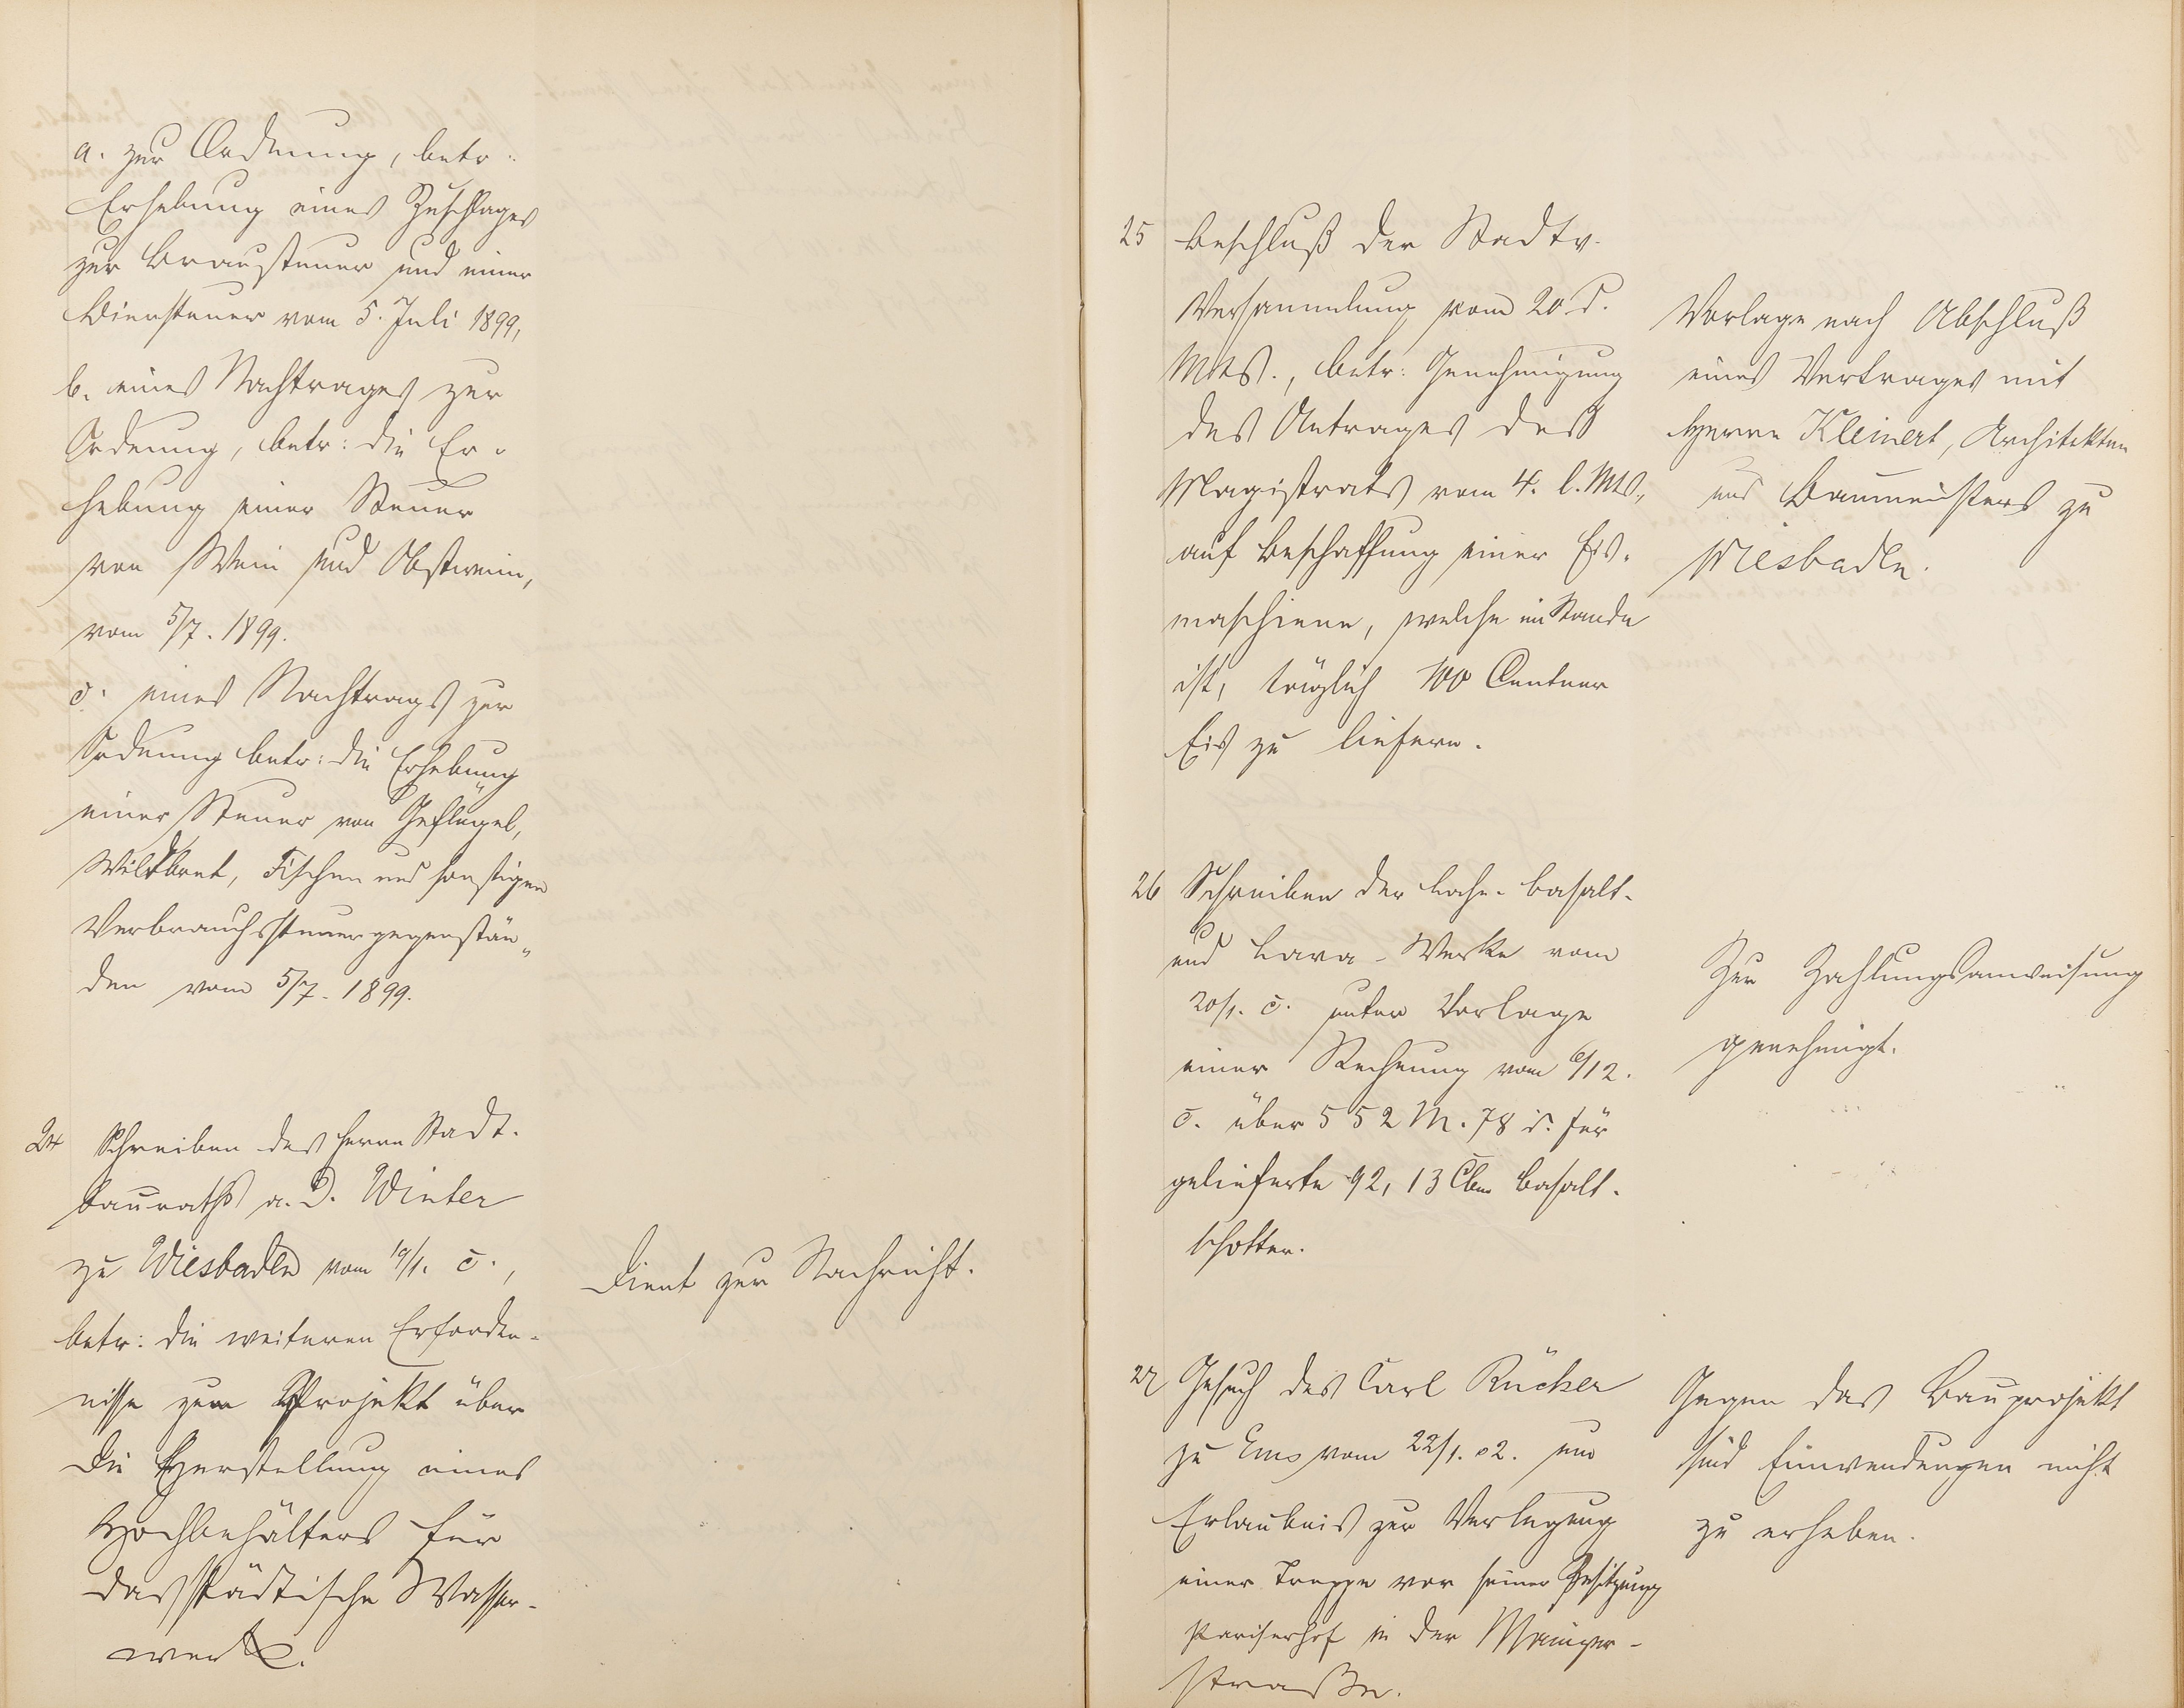 a. zur Ordnung, betr.
Erhebung eines Zuschlages
zur Brausteuer und einer
Biersteuer vom 5. Juli 1899,
b. eines Nachtrages zur
Ordnung, betr: die Er-
hebung einer Steuer
von Wein und Obstwein,
vom 5/7. 1899.
c. eines Nachtrags zur
Ordnung betr: die Erhebung
einer Steuer von Geflügel,
Wildbret, Fischen und sonstigen
Verbrauchssteuergegenstän-
den vom 5/7. 1899.
24 Schreiben des Herrn Stadt-
bauraths a. D. Winter
zu Wiesbaden vom 19/1. c.,
betr: die weiteren Erforder-
nisse zum Projekt über
die Herstellung eines
Hochbehälters für
das städtische Wasser-
werk.
Dient zur Nachricht.
25 Beschluß der Stadtv.
Versammlung vom 20. d.
Mts., betr: Genehmigung
des Antrages des
Magistrats vom 4. l. Mts.,
auf Beschaffung einer Eis-
maschiene, welche im Stande
ist, täglich 100 Centner
Eis zu liefern.
Vorlage nach Abschluß
eines Vertrages mit
Herrn Kleinert, Architekten
und Baumeisters zu
Wiesbaden.
26 Schreiben der Lahn-Basalt-
und Lava-Werke vom
20/1. c. unter Vorlage
einer Rechnung vom 6/12.
c. über 552 M. 78 d. für
gelieferte 92,13 Cbm Basalt-
schotter.
Zur Zahlungsanweisung
genehmigt.
27 Gesuch des Carl Rücker
zu Ems vom 22/1. 02. um
Erlaubnis zur Verlegung
einer Treppe vor seiner Besitzung
Pariserhof in der Mainzer-
straße.
Gegen das Bauprojekt
sind Einwendungen nicht
zu erheben.